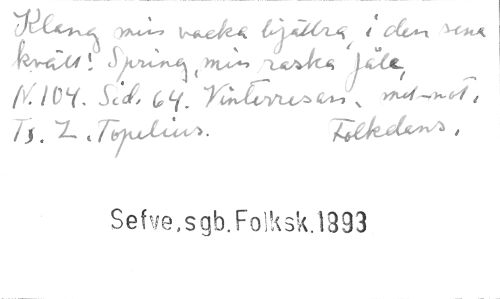 Klang min vacka bjällra, i den sena
kväll! Spring, min raska fåle,
N. 104. Sid. 64. Vinterresan, met not.
Ts. Z. Topelius. Folkdans.
Sefve, sgb. Folksk. 1893